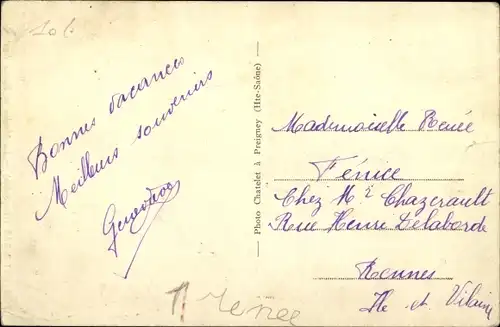 106
Bonnes vacances
Meilleurs souvenirs
Geneviève
Photo Chatelet à Preigney (Hte-Saône)
Mademoiselle Renée
Fénice
Chez Mr Chazerault
Rue Henri Delaborde
Rennes
Ile et Vilaine